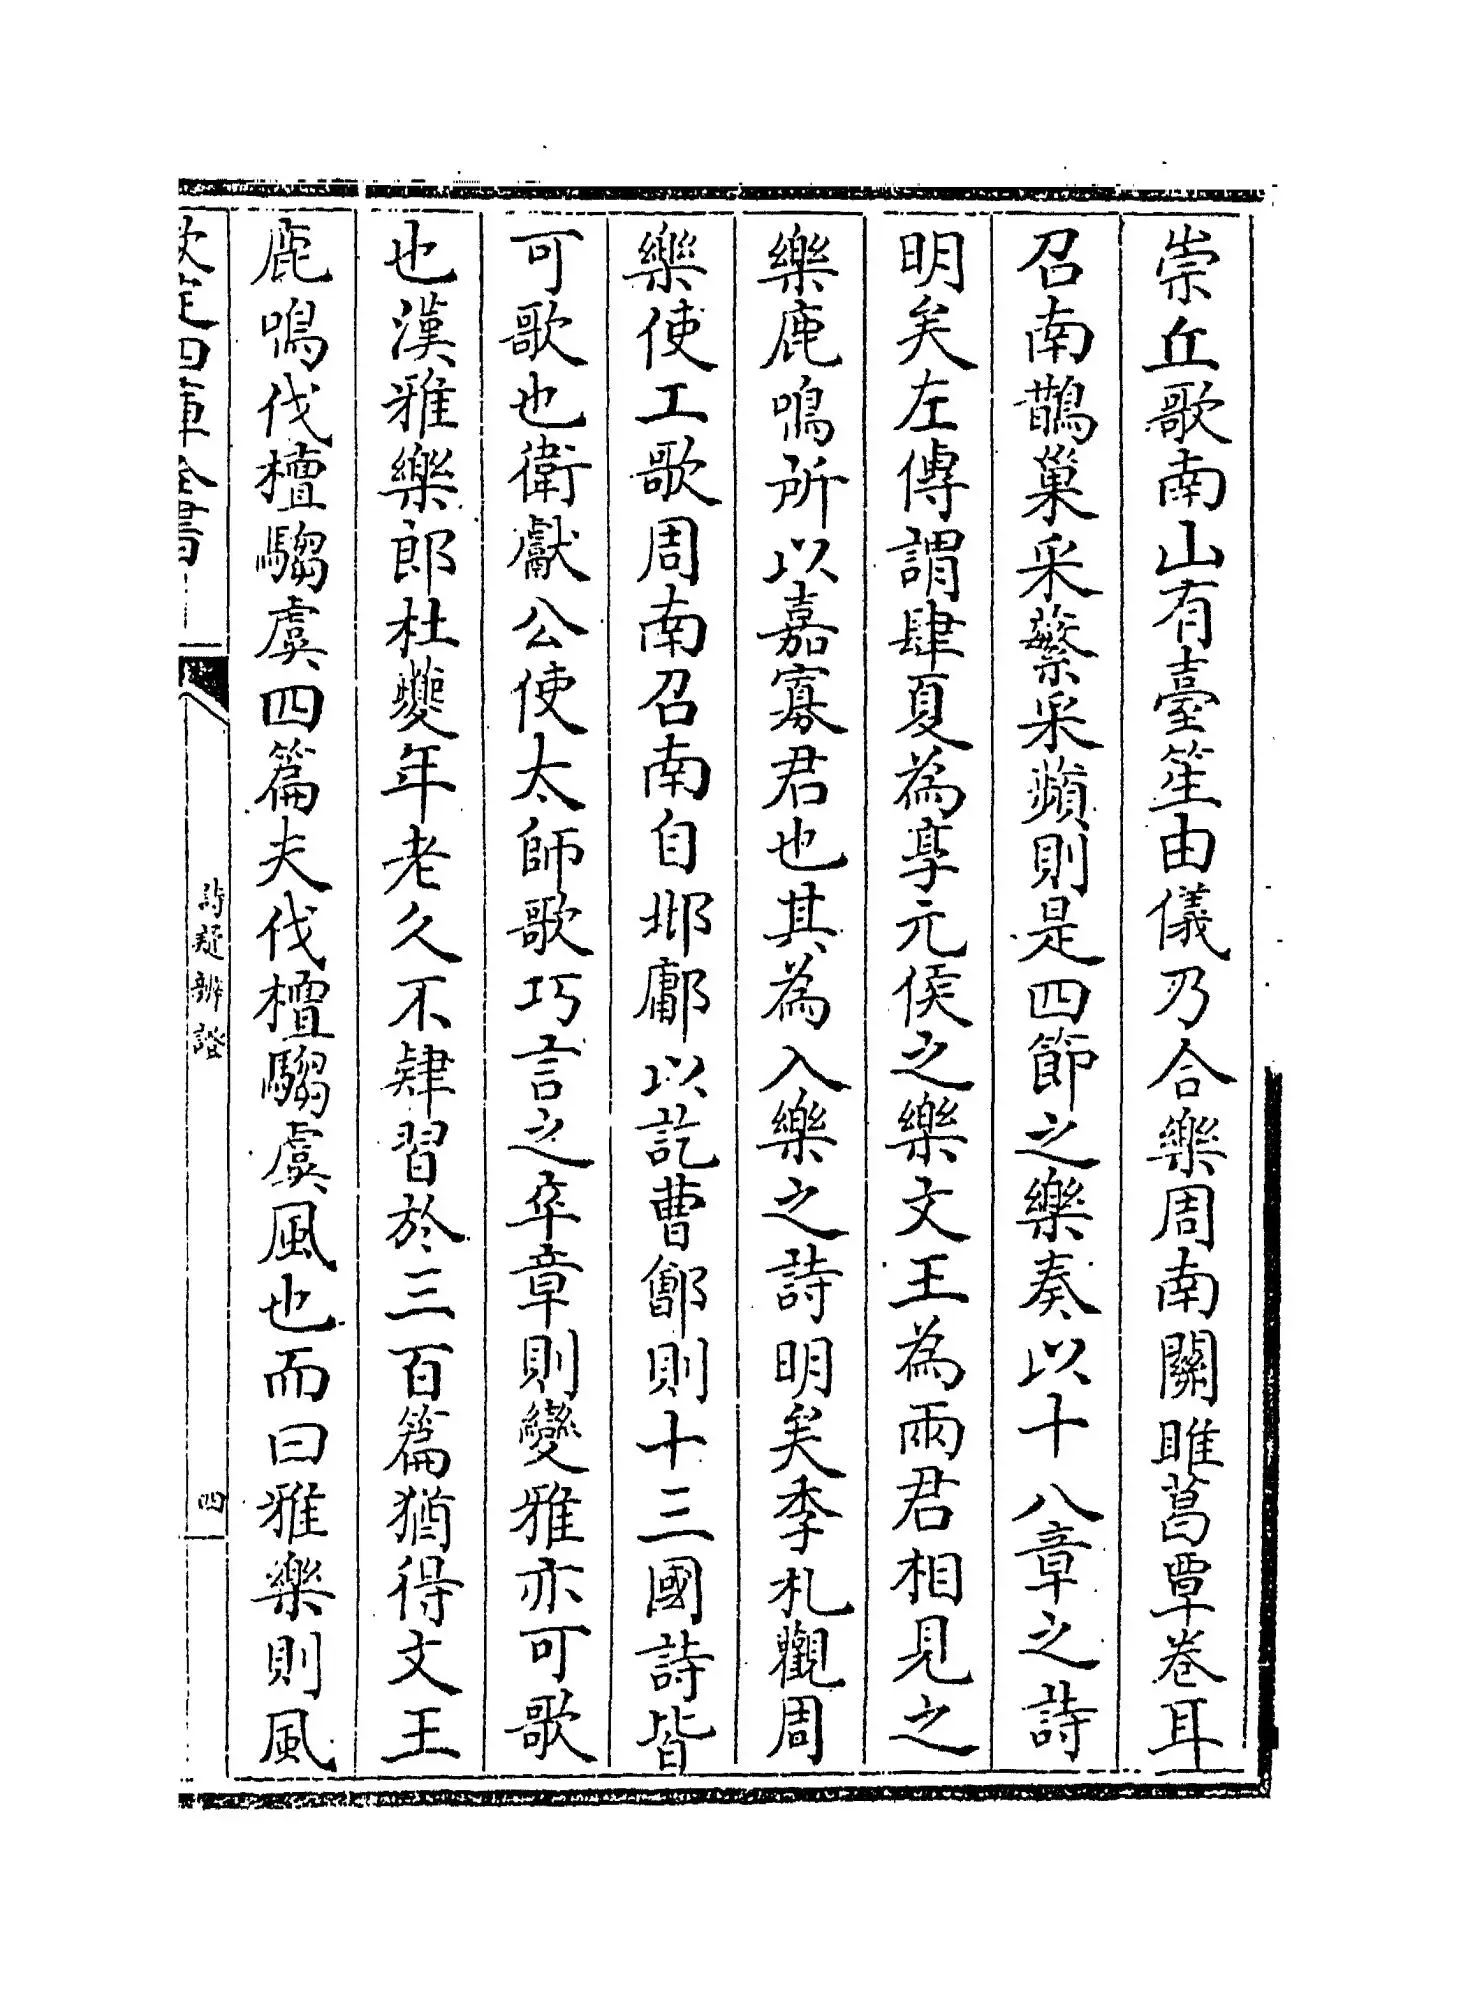 崇丘歌南山有臺笙由儀乃合樂周南關雎葛覃卷耳
召南鵲巢采蘩采蘋則是四節之樂奏以十八章之詩
明矣左傳謂肆夏為享元侯之樂文王為兩君相見之
樂鹿鳴所以嘉寡君也其為入樂之詩明矣季札觀周
樂使工歌周南召南自邶鄘以訖曹鄶則十三國詩皆
可歌也衛獻公使太師歌巧言之卒章則變雅亦可歌
也漢雅樂郎杜夔年老久不肄習於三百篇猶得文王
鹿鳴伐檀騶虞四篇夫伐檀騶虞風也而曰雅樂則風
欽定四庫全書
詩疑辨證
四